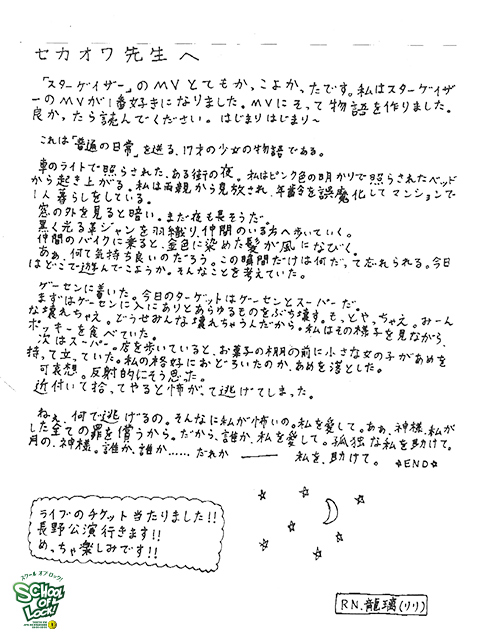 セカオワ先生へ
「スターゲイザー」のMVとてもかっこよかったです。私はスターゲイザ
ーのMVが1番好きになりました。MVにそって物語を作りました。
良かったら読んでください。はじまりはじまり～
これは「普通の日常」を送る、17才の少女の物語である。
車のライトで照らされた、ある街の夜。私はピンク色の明かりで照らされたベッド
から起き上がる。私は両親から見放され、年齢を誤魔化してマンションで
1人暮らしをしている。
窓の外を見ると暗い。まだ夜も長そうだ。
黒く光る革ジャンを羽織り、仲間のいる方へ歩いていく。
仲間のバイクに乗ると、金色に染めた髪が風になびく。
ああ、何て気持ち良いのだろう。この瞬間だけは何だって忘れられる。今日
はどこで遊んでこようか。そんなことを考えていた。
ゲーセンに着いた。今日のターゲットはゲーセンとスーパーだ。
まずはゲーセンに入りありとあらゆるものをぶち壊す。もっとやっちゃえ。みーん
な壊れちゃえ。どうせみんな壊れちゃうんだから。私はその様子を見ながら、
ポッキーを食べていた。
次はスーパー。店を歩いていると、お菓子の棚の前に小さな女の子があめを
持って立っていた。私の格好におどろいたのか、あめを落とした。
可哀想。反射的にそう思った。
近付いて拾ってやると怖がって逃げてしまった。
ねぇ、何で逃げるの。そんなに私が怖いの。私を愛して。ああ、神様、私が
した全ての罪を償うから。だから、誰か、私を愛して。孤独な私を助けて。
月の、神様。誰か、誰か…… だれか ―― 私を、助けて。 ☆END☆
ライブのチケット当たりました!!
長野公演行きます!!
めっちゃ楽しみです!!
スクール オブ ロック!
SCHOOL OF LOCK!
R.N. 龍璃(りり)